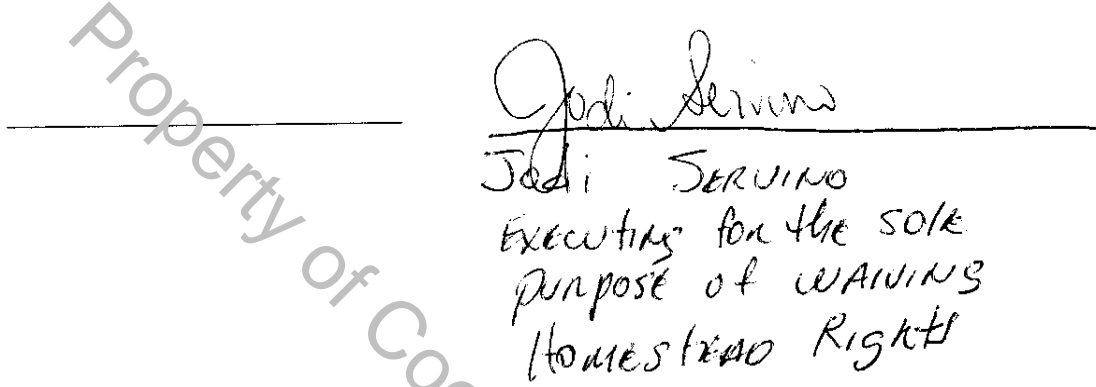 Property of Coo
Jodi Servino
Jodi SERVINO
EXECUTING for the sole
purpose of WAIVING
HOMESTEAD Rights